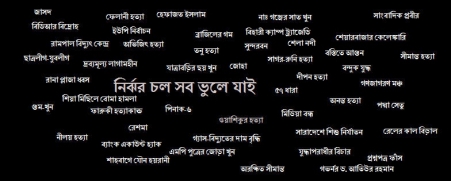 জাসদ
ফেলানী হত্যা
হেফাজত ইসলাম
নাঃ গঞ্জের সাত খুন
সাংবাদিক প্রবীর
বিডিআর বিদ্রোহ
ইউপি নির্বাচন
ব্রাজিলের গম
বিহারী ক্যাম্প ট্র্যাজেডি
শেয়ারবাজার কেলেঙ্কারি
রামপাল বিদ্যুৎ কেন্দ্র
অভিজিৎ হত্যা
তনু হত্যা
সুন্দরবন
শেলা নদী
বস্তিতে আগুন
সীমান্ত হত্যা
ছাত্রলীগ-যুবলীগ
দ্রব্যমূল্য লাগামহীন
যাত্রাবাড়ির ছয় খুন
জোহা
সাগর-রুনি হত্যা
বন্দুক যুদ্ধ
দীপন হত্যা
রানা প্লাজা ধ্বস
নির্ঝর চল সব ভুলে যাই
৫৭ ধারা
গণজাগরণ মঞ্চ
শিয়া মিছিলে বোমা হামলা
অনন্ত হত্যা
গুম-খুন
ফারুকী হত্যাকান্ড
পিনাক-৬
পদ্মা সেতু
ওয়াশিকুর হত্যা
মিডিয়া বন্ধ
রেশমা
নীলয় হত্যা
গ্যাস-বিদ্যুতের দাম বৃদ্ধি
সারাদেশে শিশু নির্যাতন
রেলের কাল বিড়াল
ব্যাংক একাউন্ট হ্যাক
এমপি পুত্রের জোড়া খুন
যুদ্ধাপরাধীর বিচার
শাহবাগে যৌন হয়রানী
প্রশ্নপত্র ফাঁস
অরক্ষিত সীমান্ত
গভর্নর ড. আতিউর রহমান